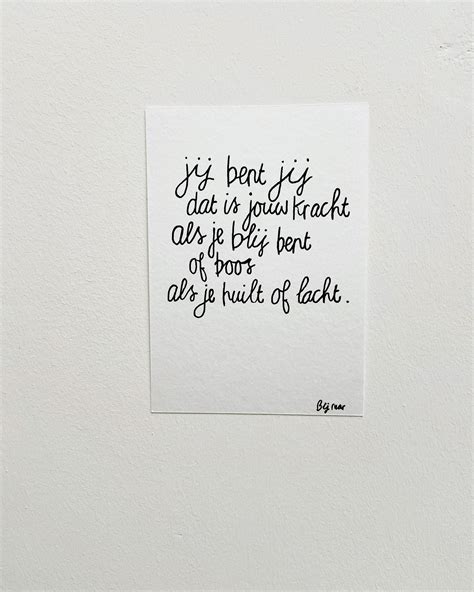 jij bent jij
dat is jouw kracht
als je blij bent
of boos
als je huilt of lacht.